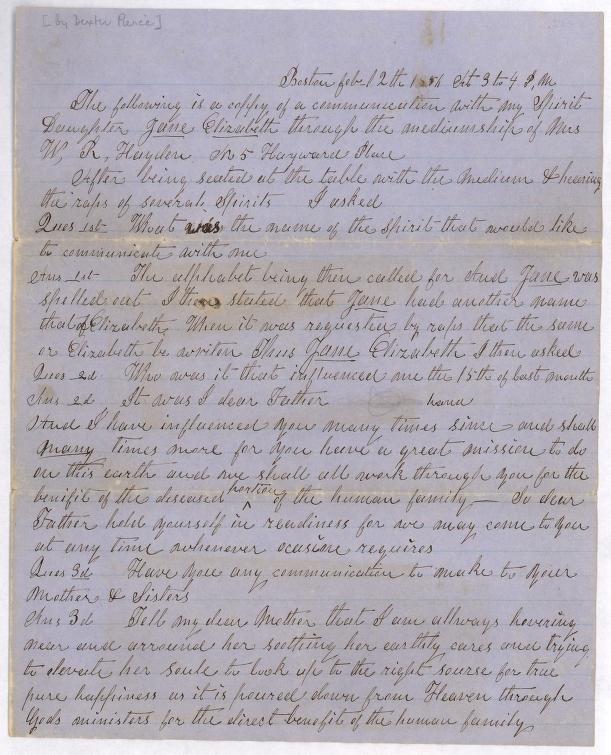 [by Dexter Pierce]
Boston feb 12th 1851 At 3 to 4 P, M
The following is a coppy of a communication with my Spirit
Daughter Jane Elizabeth through the mediumship of Mrs
W, R, Hayden, No 5 Hayward Place
After being seated at the table with the Medium & hearing
the raps of severals Spirits I asked
Ques 1st What was the name of the Spirit that would like
to communicate with me
Ans 1st The alphabet being then called for And Jane was
spelled out I then stated that Jane had another name
that of Elizabeth When it was requested by raps that the same
or Elizabeth be writen Thus Jane Elizabeth I then asked
Ques 2d Who was it that influenced me the 15th of last month
Ans 2d It was I dear Father hand
And I have influenced you many times since and shall
many times more for you have a great mission to do
on this earth and we shall all work through you for the
benifit of the diseased portion of the human family — So dear
Father hold yourself in readiness for we may come to you
at any time whenever ocasione requires
Ques 3d Have you any communication to make to your
Mother & Sisters
Ans 3d Tell my dear Mother that I am allways hovering
near and arround her soothing her earthly cares and trying
to elevate her soule to look up to the right sourse for true
pure happiness as it is poured down from Heaven through
Gods ministers for the direct benefit of the human family